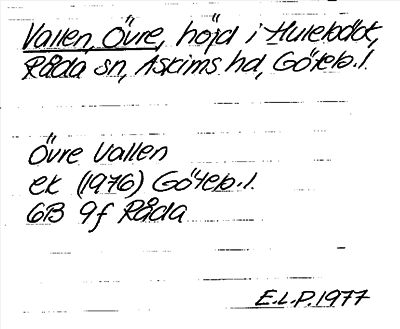 Vallen, Övre, höjd i Hulebäck,
Råda sn, Askims hd, Göteb. l.
Övre Vallen
ek (1976) Göteb. l.
6B 9f Råda
E.L.P. 1977